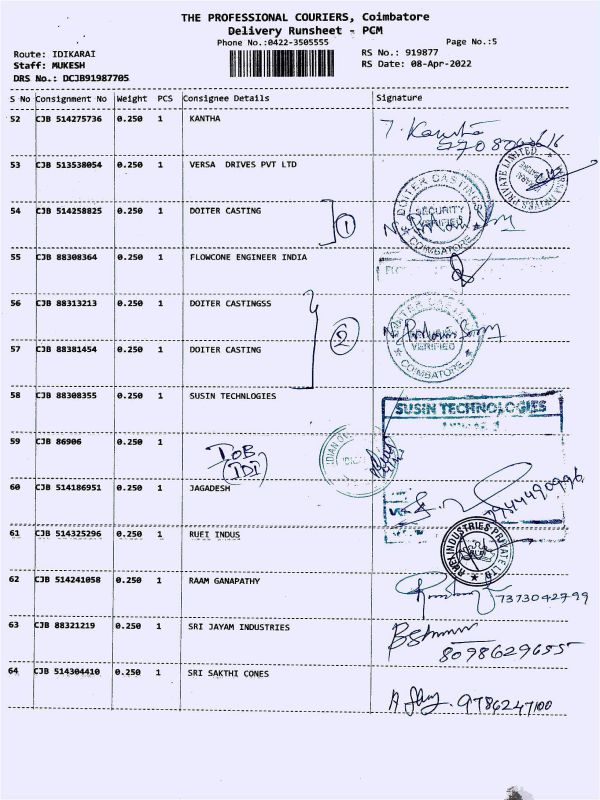 THE PROFESSIONAL COURIERS, Coimbatore
Delivery Runsheet - PCM
Phone No.:0422-3505555 Page No.:5
Route: IDIKARAI RS No.: 919877
Staff: MUKESH RS Date: 08-Apr-2022
DRS No.: DCJB91987705
S No Consignment No Weight PCS Consignee Details Signature
52 CJB 514275736 0.250 1 KANTHA
T. Kantha
53 CJB 513538054 0.250 1 VERSA DRIVES PVT LTD
54 CJB 514258825 0.250 1 DOITER CASTING 1
DOITER CASTINGS SECURITY VERIFIED COIMBATORE
55 CJB 88308364 0.250 1 FLOWCONE ENGINEER INDIA
56 CJB 88313213 0.250 1 DOITER CASTINGSS
2
DOITER CASTINGS VERIFIED COIMBATORE
57 CJB 88381454 0.250 1 DOITER CASTING
58 CJB 88308355 0.250 1 SUSIN TECHNLOGIES
SUSIN TECHNOLOGIES
59 CJB 86906 0.250 1
IOB
(IDI)
60 CJB 514186951 0.250 1 JAGADESH
9944490996
61 CJB 514325296 0.250 1 RUEI INDUS
RUEI INDUSTRIES PRIVATE LTD.
62 CJB 514241058 0.250 1 RAAM GANAPATHY
7373042799
63 CJB 88321219 0.250 1 SRI JAYAM INDUSTRIES
8098629655
64 CJB 514304410 0.250 1 SRI SAKTHI CONES
9786247100